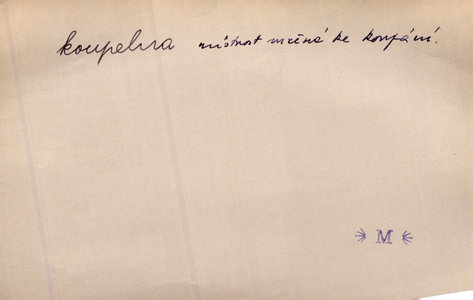 koupelna místnost určená ke koupání.
M